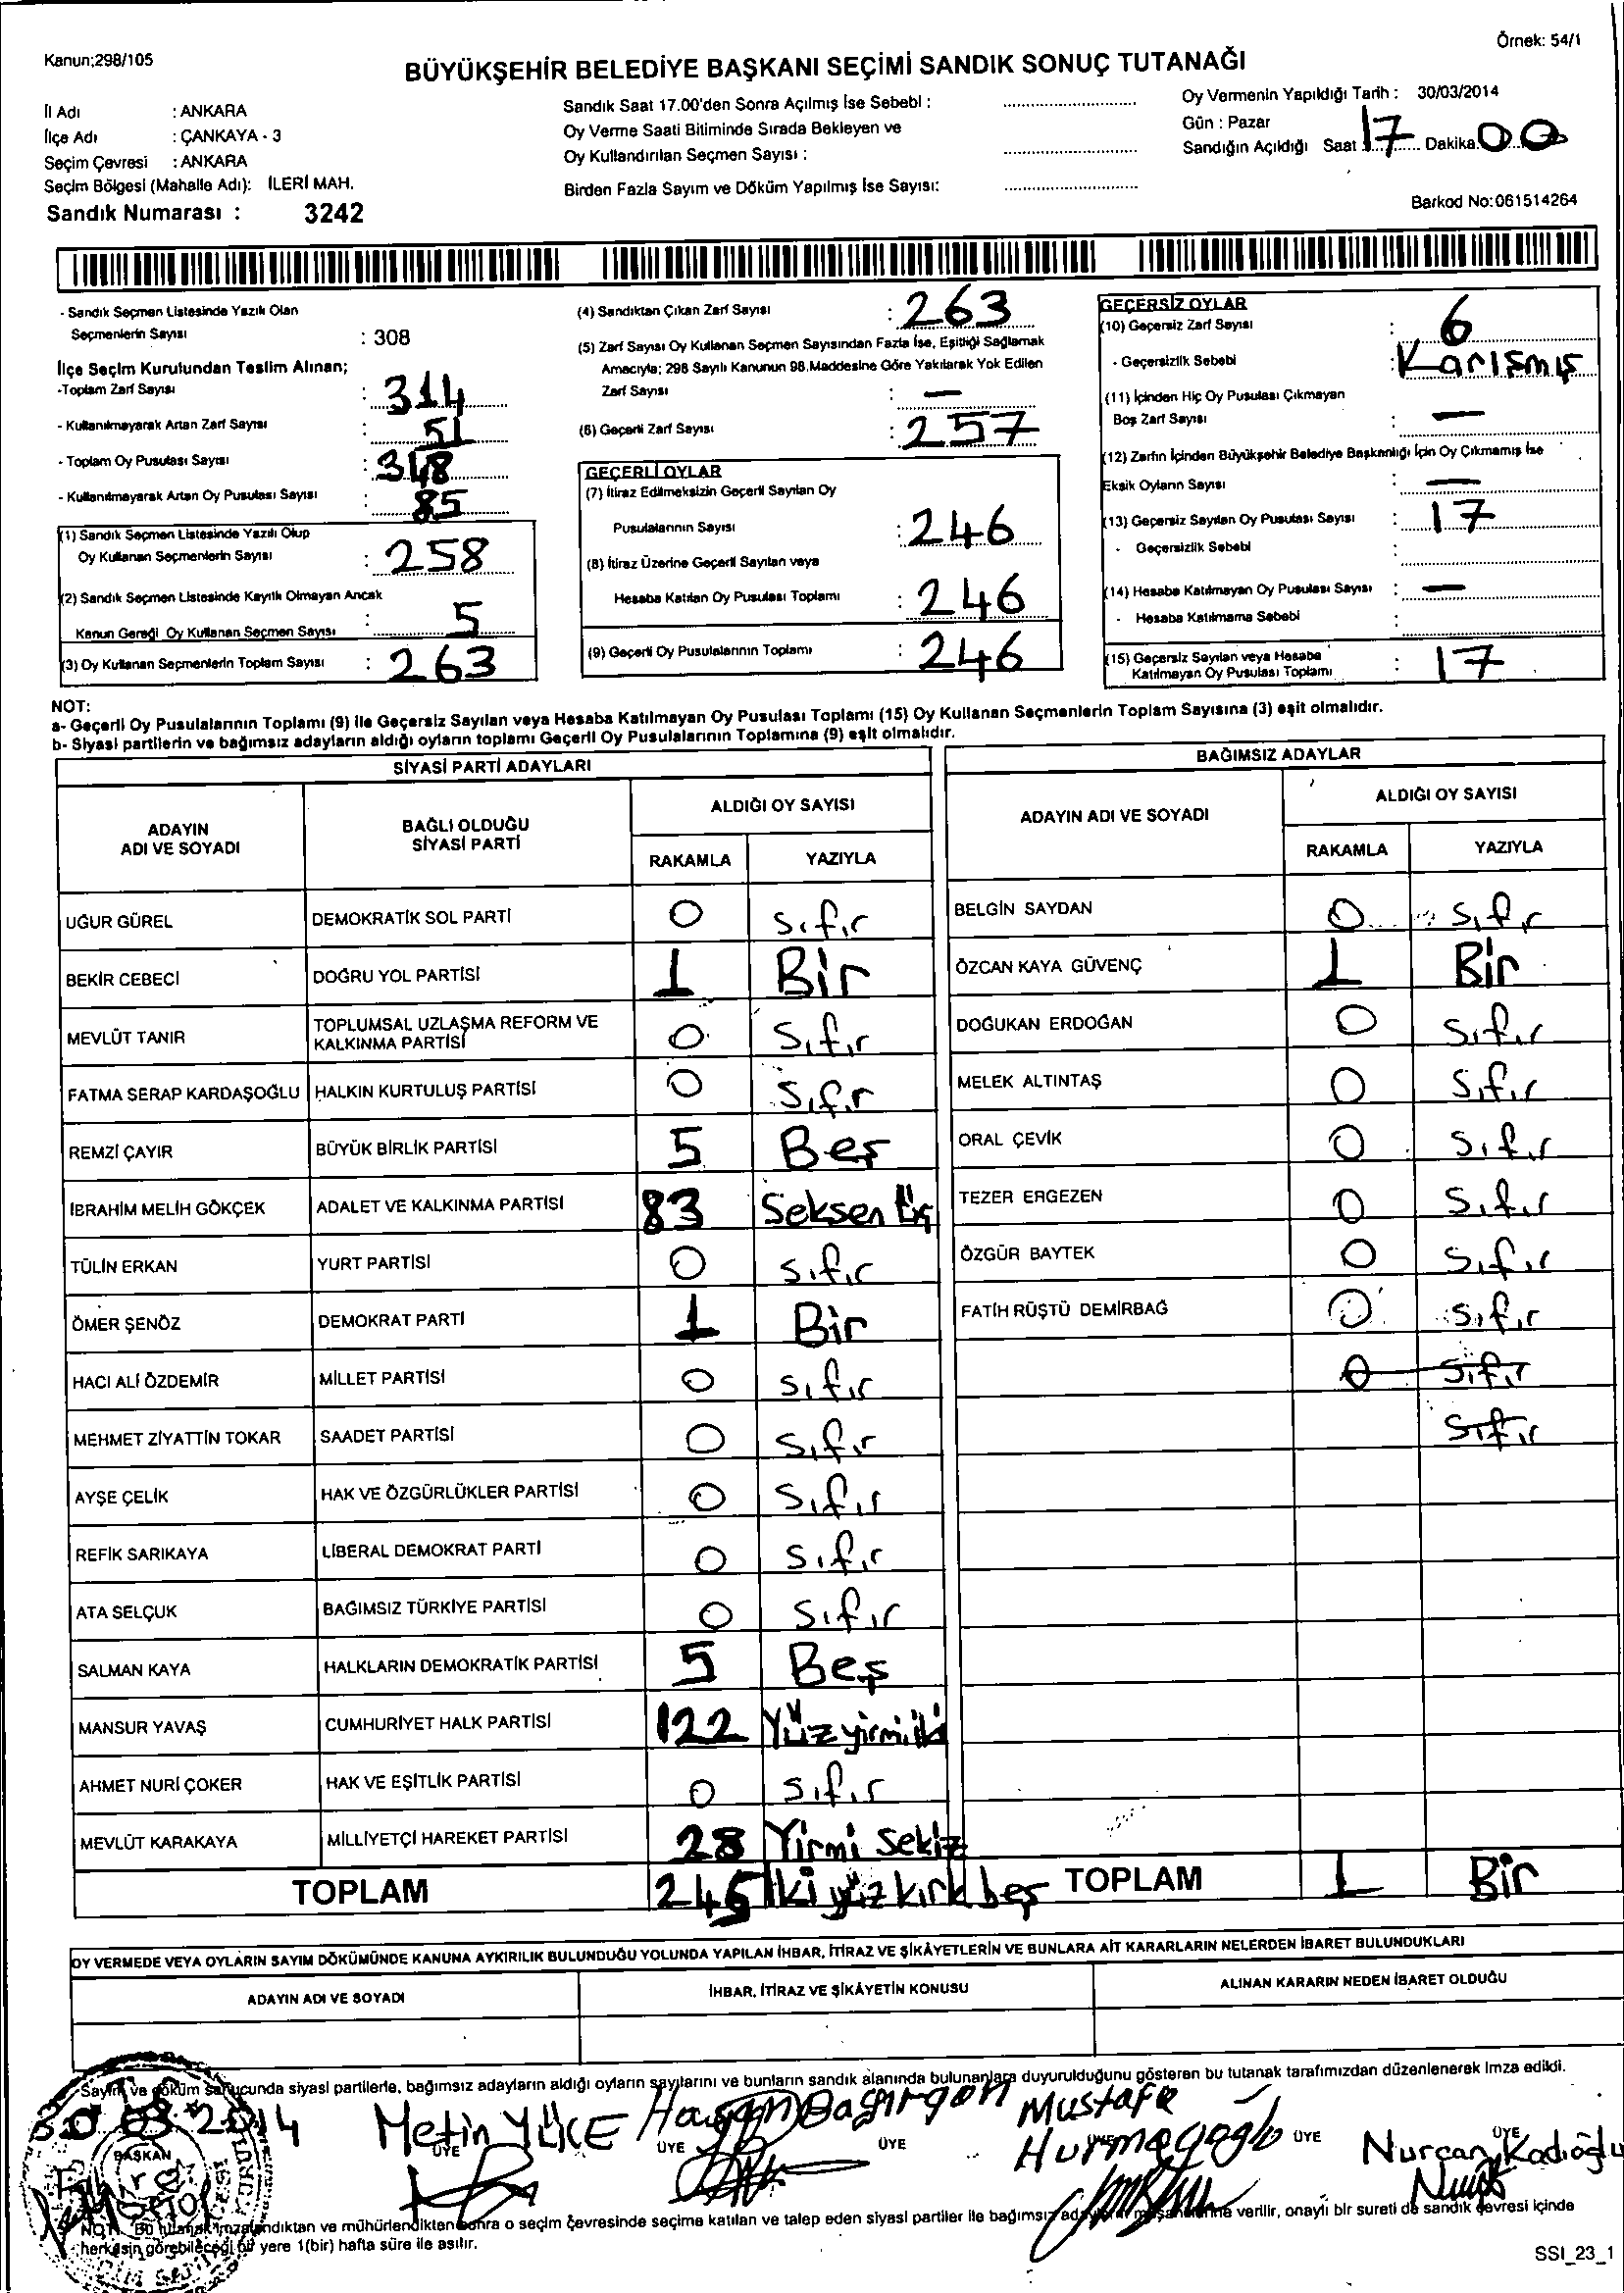 Kanun;298/105
Örnek: 54/1
BÜYÜKŞEHİR BELEDİYE BAŞKANI SEÇİMİ SANDIK SONUÇ TUTANAĞI
İl Adı : ANKARA
İlçe Adı : ÇANKAYA - 3
Seçim Çevresi : ANKARA
Seçim Bölgesi (Mahalle Adı): İLERİ MAH.
Sandık Numarası : 3242
Sandık Saat 17.00'den Sonra Açılmış İse Sebebi :
Oy Verme Saati Bitiminde Sırada Bekleyen ve
Oy Kullandırılan Seçmen Sayısı :
Birden Fazla Sayım ve Döküm Yapılmış İse Sayısı:
Oy Vermenin Yapıldığı Tarih : 30/03/2014
Gün : Pazar
Sandığın Açıldığı Saat 17 Dakika 00
Barkod No:061514264
- Sandık Seçmen Listesinde Yazılı Olan
Seçmenlerin Sayısı : 308
İlçe Seçim Kurulundan Teslim Alınan;
-Toplam Zarf Sayısı : 314
- Kullanılmayarak Artan Zarf Sayısı : 51
- Toplam Oy Pusulası Sayısı : 348
- Kullanılmayarak Artan Oy Pusulası Sayısı : 85
(1) Sandık Seçmen Listesinde Yazılı Olup
Oy Kullanan Seçmenlerin Sayısı : 258
(2) Sandık Seçmen Listesinde Kayıtlı Olmayan Ancak
Kanun Gereği Oy Kullanan Seçmen Sayısı : 5
(3) Oy Kullanan Seçmenlerin Toplam Sayısı : 263
(4) Sandıktan Çıkan Zarf Sayısı : 263
(5) Zarf Sayısı Oy Kullanan Seçmen Sayısından Fazla İse, Eşitliği Sağlamak
Amacıyla; 298 Sayılı Kanunun 98.Maddesine Göre Yakılarak Yok Edilen
Zarf Sayısı : —
(6) Geçerli Zarf Sayısı : 257
GEÇERLİ OYLAR
(7) İtiraz Edilmeksizin Geçerli Sayılan Oy
Pusulalarının Sayısı : 246
(8) İtiraz Üzerine Geçerli Sayılan veya
Hesaba Katılan Oy Pusulası Toplamı : 246
(9) Geçerli Oy Pusulalarının Toplamı : 246
GEÇERSİZ OYLAR
(10) Geçersiz Zarf Sayısı : 6
- Geçersizlik Sebebi : Karışmış
(11) İçinden Hiç Oy Pusulası Çıkmayan
Boş Zarf Sayısı : —
(12) Zarfın İçinden Büyükşehir Belediye Başkanlığı İçin Oy Çıkmamış İse
Eksik Oyların Sayısı : —
(13) Geçersiz Sayılan Oy Pusulası Sayısı : 17
- Geçersizlik Sebebi :
(14) Hesaba Katılmayan Oy Pusulası Sayısı : —
- Hesaba Katılmama Sebebi :
(15) Geçersiz Sayılan veya Hesaba
Katılmayan Oy Pusulası Toplamı : 17
NOT:
a- Geçerli Oy Pusulalarının Toplamı (9) ile Geçersiz Sayılan veya Hesaba Katılmayan Oy Pusulası Toplamı (15) Oy Kullanan Seçmenlerin Toplam Sayısına (3) eşit olmalıdır.
b- Siyasi partilerin ve bağımsız adayların aldığı oyların toplamı Geçerli Oy Pusulalarının Toplamına (9) eşit olmalıdır.
SİYASİ PARTİ ADAYLARI
ADAYIN ADI VE SOYADI
BAĞLI OLDUĞU SİYASİ PARTİ
ALDIĞI OY SAYISI
RAKAMLA YAZIYLA
UĞUR GÜREL DEMOKRATİK SOL PARTİ 0 Sıfır
BEKİR CEBECİ DOĞRU YOL PARTİSİ 1 Bir
MEVLÜT TANIR TOPLUMSAL UZLAŞMA REFORM VE KALKINMA PARTİSİ 0 Sıfır
FATMA SERAP KARDAŞOĞLU HALKIN KURTULUŞ PARTİSİ 0 Sıfır
REMZİ ÇAYIR BÜYÜK BİRLİK PARTİSİ 5 Beş
İBRAHİM MELİH GÖKÇEK ADALET VE KALKINMA PARTİSİ 83 Seksen Üç
TÜLİN ERKAN YURT PARTİSİ 0 Sıfır
ÖMER ŞENÖZ DEMOKRAT PARTİ 1 Bir
HACI ALİ ÖZDEMİR MİLLET PARTİSİ 0 Sıfır
MEHMET ZİYATTİN TOKAR SAADET PARTİSİ 0 Sıfır
AYŞE ÇELİK HAK VE ÖZGÜRLÜKLER PARTİSİ 0 Sıfır
REFİK SARIKAYA LİBERAL DEMOKRAT PARTİ 0 Sıfır
ATA SELÇUK BAĞIMSIZ TÜRKİYE PARTİSİ 0 Sıfır
SALMAN KAYA HALKLARIN DEMOKRATİK PARTİSİ 5 Beş
MANSUR YAVAŞ CUMHURİYET HALK PARTİSİ 122 Yüz yirmi iki
AHMET NURİ ÇOKER HAK VE EŞİTLİK PARTİSİ 0 Sıfır
MEVLÜT KARAKAYA MİLLİYETÇİ HAREKET PARTİSİ 28 Yirmi Sekiz
TOPLAM 245 İki yüz kırk beş
BAĞIMSIZ ADAYLAR
ADAYIN ADI VE SOYADI
ALDIĞI OY SAYISI
RAKAMLA YAZIYLA
BELGİN SAYDAN 0 Sıfır
ÖZCAN KAYA GÜVENÇ 1 Bir
DOĞUKAN ERDOĞAN 0 Sıfır
MELEK ALTINTAŞ 0 Sıfır
ORAL ÇEVİK 0 Sıfır
TEZER ERGEZEN 0 Sıfır
ÖZGÜR BAYTEK 0 Sıfır
FATİH RÜŞTÜ DEMİRBAĞ 0 Sıfır
0 Sıfır
Sıfır
TOPLAM 1 Bir
OY VERMEDE VEYA OYLARIN SAYIM DÖKÜMÜNDE KANUNA AYKIRILIK BULUNDUĞU YOLUNDA YAPILAN İHBAR, İTİRAZ VE ŞİKÂYETLERİN VE BUNLARA AİT KARARLARIN NELERDEN İBARET BULUNDUKLARI
ADAYIN ADI VE SOYADI
İHBAR, İTİRAZ VE ŞİKÂYETİN KONUSU
ALINAN KARARIN NEDEN İBARET OLDUĞU
Sayım ve döküm sonucunda siyasi partilerle, bağımsız adayların aldığı oyların sayılarını ve bunların sandık alanında bulunanlara duyurulduğunu gösteren bu tutanak tarafımızdan düzenlenerek imza edildi.
30 03 2014
BAŞKAN
Metin YÜCE
ÜYE
Hasan
ÜYE
ÜYE
Mustafa
ÜYE
Nurcan Kadıoğlu
ÜYE
NOT: Bu tutanak imzalandıktan ve mühürlendikten sonra o seçim çevresinde seçime katılan ve talep eden siyasi partiler ile bağımsız verilir, onaylı bir sureti de sandık çevresi içinde
herkesin görebileceği bir yere 1(bir) hafta süre ile asılır.
SSI_23_1